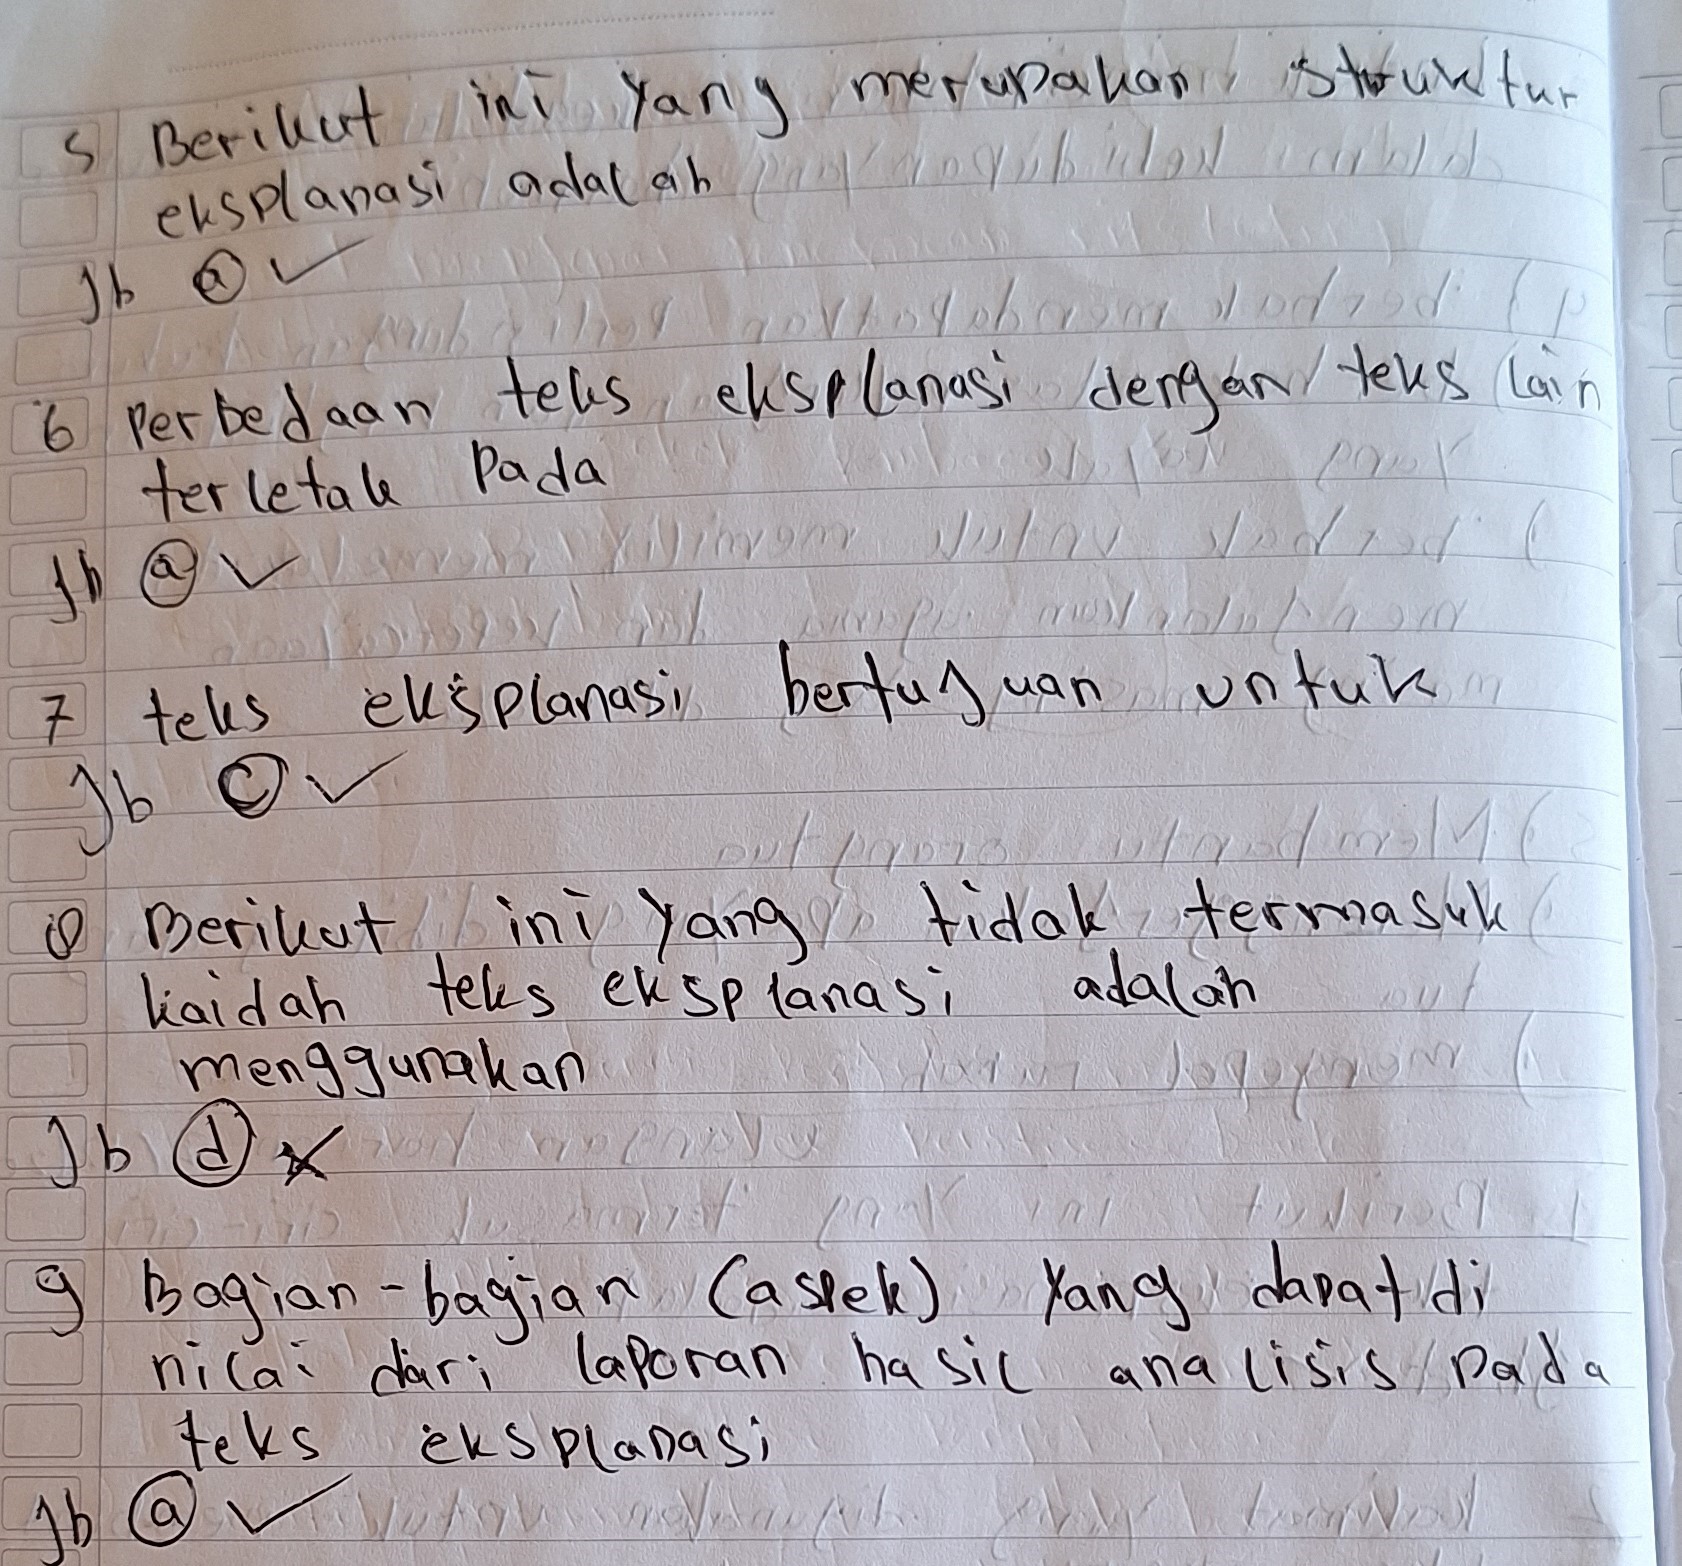 5 Berikut ini yang merupakan struktur
eksplanasi adalah
Jb ⓐ ✓
6 Perbedaan teks eksplanasi dengan teks lain
terletak Pada
Jb ⓐ ✓
7 teks eksplanasi bertujuan untuk
Jb ⓒ ✓
8 Berikut ini yang tidak termasuk
kaidah teks eksplanasi adalah
menggunakan
Jb ⓓ ✗
9 Bagian-bagian (aspek) yang dapat di
nilai dari laporan hasil analisis Pada
teks eksplanasi
Jb ⓐ ✓